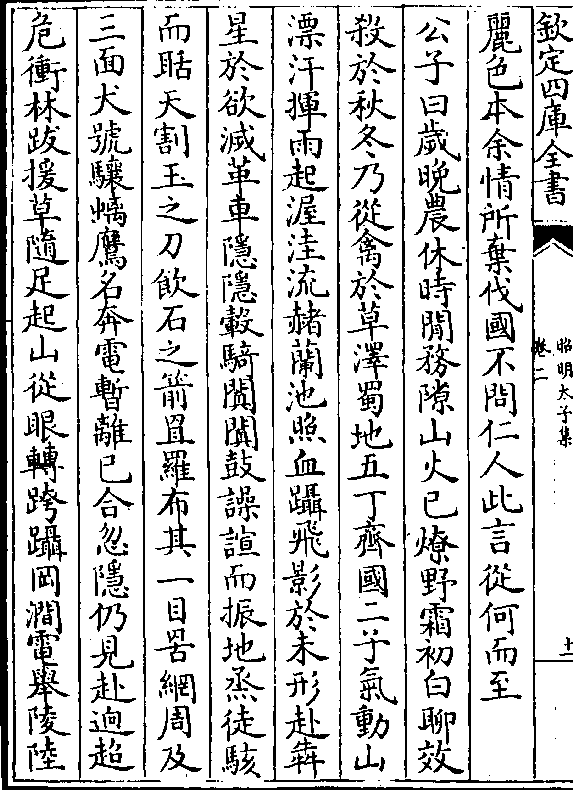 欽定四庫全書
昭明太子集
卷二
十一
麗色本余情所棄伐國不問仁人此言從何而至
公子曰歲晩農休時閒務隙山火已燎野霜初白聊效
殺於秋冬乃從禽於草澤蜀地五丁齊國二子氣動山
漂汗揮雨起渥洼流赭蘭池照血躡飛影於未形赴犇
星於欲滅革車隱隱轂騎闐闐鼓譟諠而振地烝徒駭
而聒天割玉之刀飲石之箭罝羅布其一目罟網周及
三面犬號驤螭鷹名奔電暫離已合忽隱仍見赴逈超
危衝林跋援草隨足起山從眼轉跨躡岡澗電舉陵陸